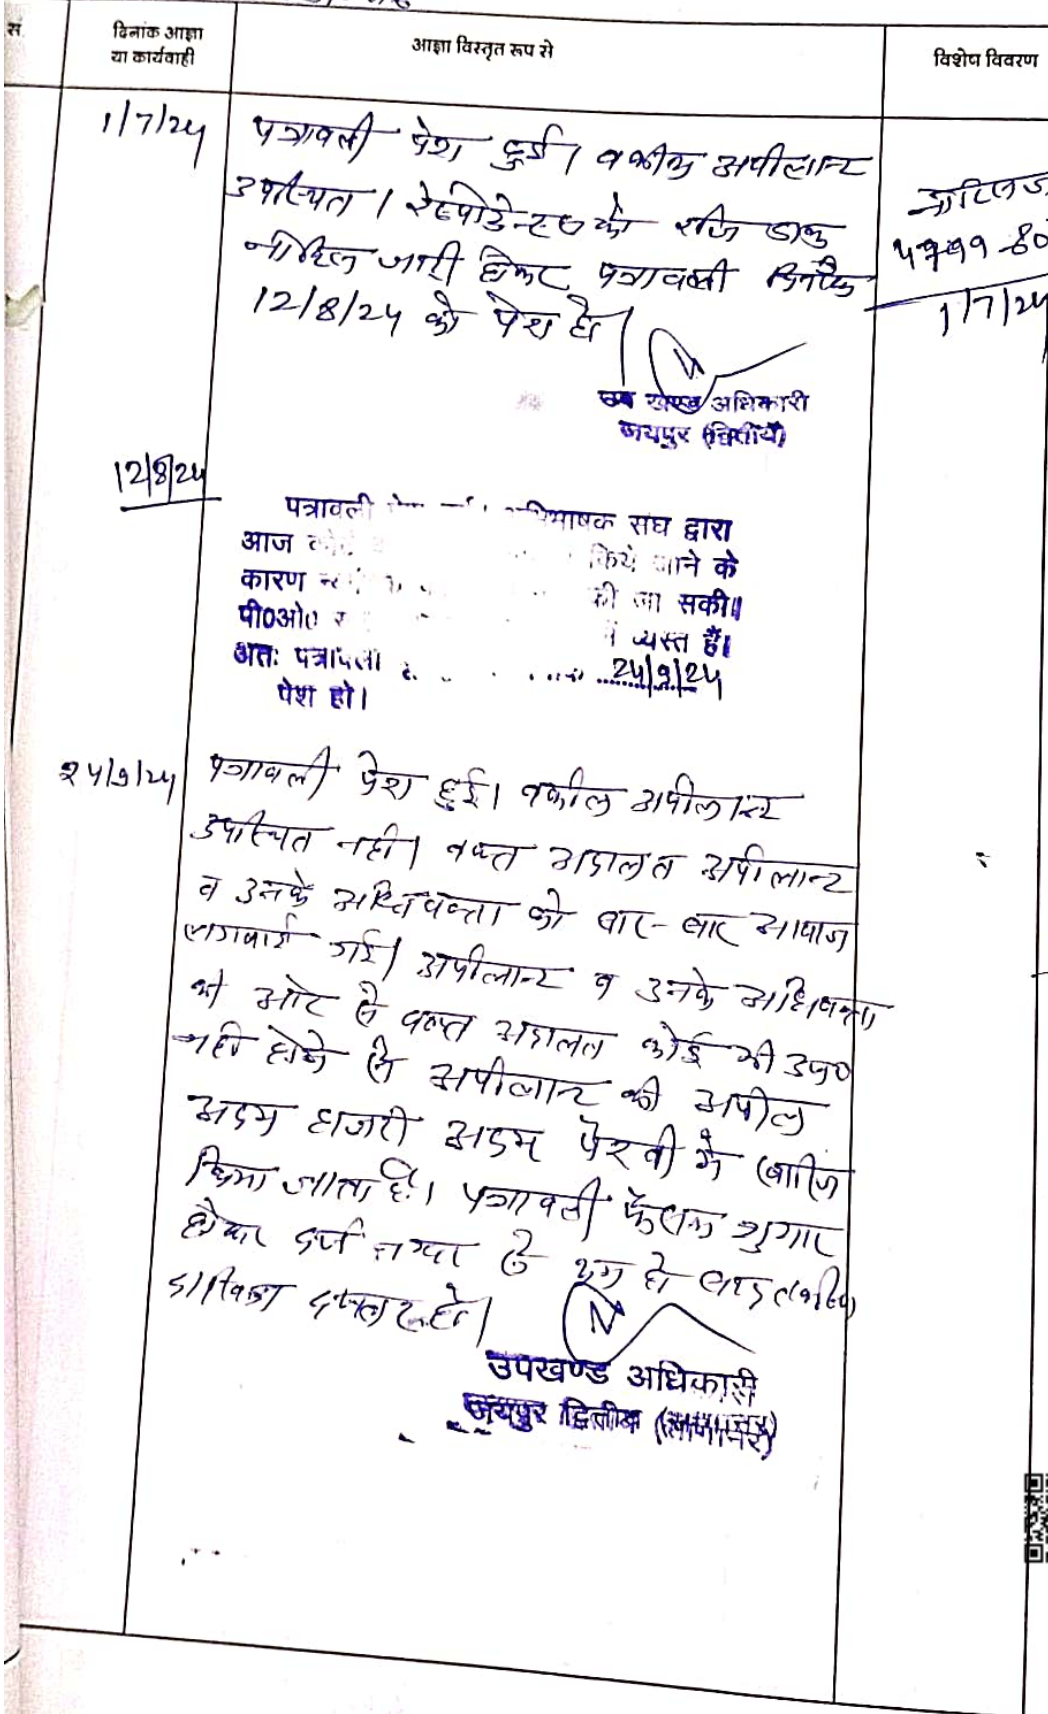 सं.
दिनांक आज्ञा
या कार्यवाही
आज्ञा विस्तृत रूप से
विशेष विवरण
1/7/24
पत्रावली पेश हुई। वकील अपीलान्ट
उपस्थित। रेस्पोडेन्ट्स को रजि डाक
नोटिस जारी होकर पत्रावली दिनांक
12/8/24 को पेश हो।
नोटिस
1/7/24
उप खण्ड अधिकारी
जयपुर (द्वितीय)
12/8/24
पत्रावली अभिभाषक संघ द्वारा
आज किये जाने के
कारण की जा सकी॥
पी0ओ0 व्यस्त हैं।
अतः पत्रावली 24/9/24
पेश हो।
24/9/24
पत्रावली पेश हुई। वकील अपीलान्ट
उपस्थित नही। वक्त अदालत अपीलान्ट
व उनके अधिवक्ता को बार-बार आवाज
लगवाई गई। अपीलान्ट व उनके अधिवक्ता
की ओर से वक्त अदालत कोई भी उज0
नही होने से अपीलान्ट की अपील
अदम हाजरी अदम पैरवी में खारिज
किया जाता है। पत्रावली फैसल शुमार
होकर दर्ज नम्बर से कम हो बाद तकमिल
दाखिल दफ्तर हो।
उपखण्ड अधिकारी
जयपुर द्वितीय (सांगानेर)